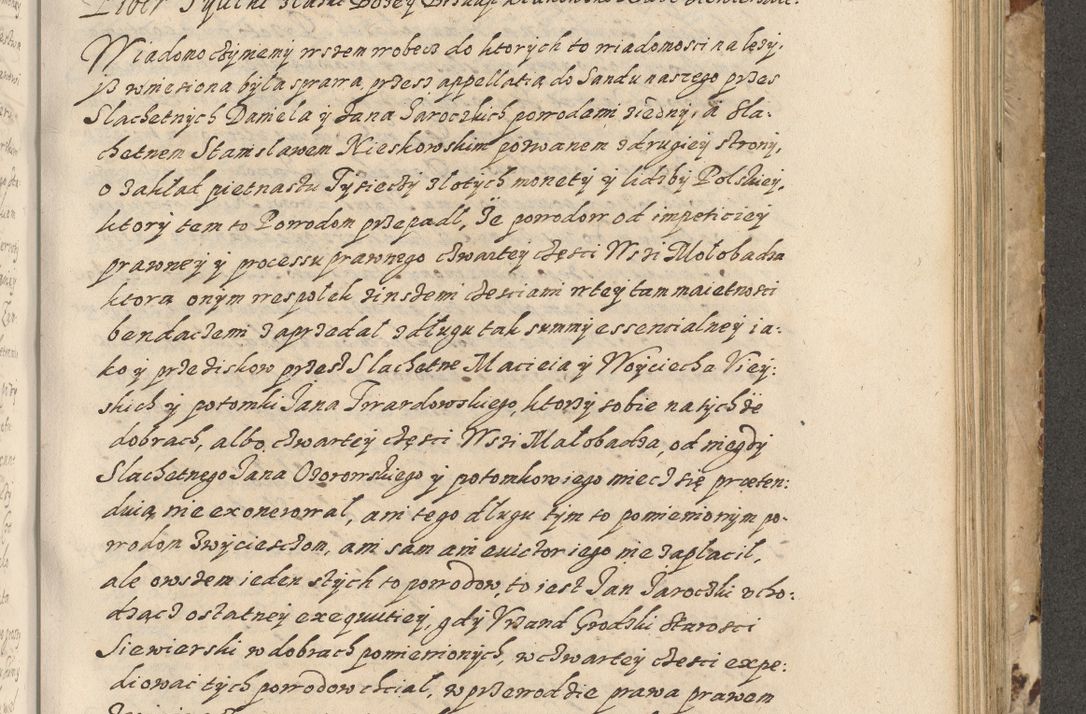 Wiadomo czÿnemÿ wszem wobecz do ktorych to wiadomosci należÿ.
jż wniesiona była sprawa przesz appellatią do Sandu naszego przes
Slachetnÿch Daniela ÿ Jana Jaroczkich powodami ziednÿ, a Sla-
chetnem Stanislawem Nieskowskim pozwanem zdrugieÿ stronÿ,
o zakład pietnastu Tÿsieczÿ złotÿch monetÿ ÿ liczbÿ Polskieÿ,
ktorÿ tem to Powodom przepadl, że powodow od impeticieÿ
prawneÿ ÿ processu prawnego czwarteÿ częsci Wszi Małobadza
ktora onÿm wespołek zinszemi częsciami wteÿ tam maietnosci
bendaczemi zaprzedał zdługu tak summÿ essencialneÿ ia-
ko ÿ przeziskow przesz Slachetne Macieia ÿ Woÿciecha Vieÿ-
skich ÿ potomki Jana Twardowskiego, ktorzÿ sobie na tÿchże
dobrach, albo czwarteÿ częsci Wszi Małobadza, od niegdÿ
Slachetnego Jana Ozorowskiego ÿ potomkow iego miecz się præten-
duią nie exonerował, ani tego długu tÿm to pomienionÿm po-
wodom zwÿciesczom, ani sam ani euictor iego nie zaplacil,
ale owszem ieden stÿch to powodow, to iest Jan Jaroczki vcho-
dzącz ostatneÿ exequutieÿ, gdÿ Vrzand Grodzki Starosci
Siewierski w dobrach pomienionÿch, w czwarteÿ częsci expe-
diować tÿch powodow chciał, w przewodzie prawa prawem